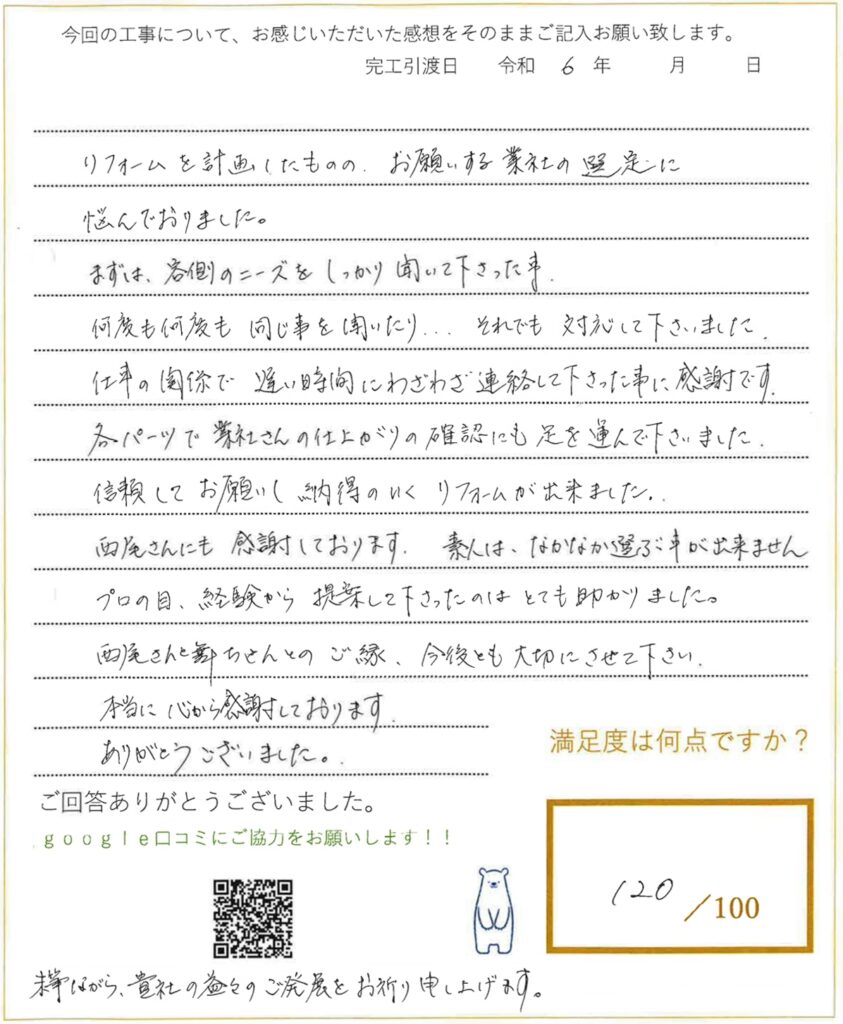 今回の工事について、お感じいただいた感想をそのままご記入お願い致します。
完工引渡日 令和 6 年 月 日
リフォームを計画したものの、お願いする業社の選定に
悩んでおりました。
まずは、客側のニーズをしっかり聞いて下さった事.
何度も何度も同じ事を聞いたり... それでも対応して下さいました.
仕事の関係で遅い時間にわざわざ連絡して下さった事に感謝です.
各パーツで業社さんの仕上がりの確認にも足を運んで下さいました.
信頼してお願いし納得のいくリフォームが出来ました..
西尾さんにも感謝しております. 素人は、なかなか選ぶ事が出来ません
プロの目、経験から提案して下さったのはとても助かりました。
西尾さんと さんとのご縁、今後とも大切にさせて下さい.
本当に心から感謝しております.
ありがとうございました。.
満足度は何点ですか？
ご回答ありがとうございました。
google口コミにご協力をお願いします！！
120 /100
末筆ながら、貴社の益々のご発展をお祈り申し上げます。